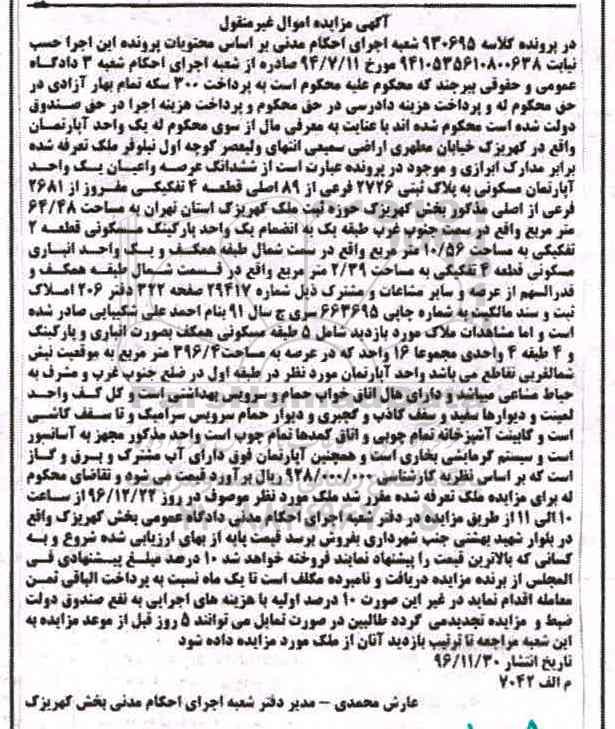 آگهی مزایده اموال غیر منقول
در پرونده کلاسه ۹۳۰۶۹۵ شعبه اجرای احکام مدنی بر اساس محتویات پرونده این اجرا حسب
نیابت ۹۴۱۰۵۳۵۶۱۰۸۰۰۶۳۸ مورخ ۹۴/۷/۱۱ صادره از شعبه اجرای احکام شعبه ۳ دادگاه
عمومی و حقوقی بیرجند که محکوم علیه محکوم است به پرداخت ۳۰۰ سکه تمام بهار آزادی در
حق محکوم له و پرداخت هزینه دادرسی در حق محکوم و پرداخت هزینه اجرا در حق صندوق
دولت شده است محکوم شده اند با عنایت به معرفی مال از سوی محکوم له یک واحد آپارتمان
واقع در کهریزک خیابان مطهری اراضی سمیعی انتهای ولیعصر کوچه اول نیلوفر ملک تعرفه شده
برابر مدارک ابرازی و موجود در پرونده عبارت است از ششدانگ عرصه واعیان یک واحد
آپارتمان مسکونی به پلاک ثبتی ۲۷۲۶ فرعی از ۸۹ اصلی قطعه ۴ تفکیکی مفروز از ۲۶۸۱
فرعی از اصلی مذکور بخش کهریزک حوزه ثبت ملک کهریزک استان تهران به مساحت ۶۴/۴۸
متر مربع واقع در سمت جنوب غرب طبقه یک به انضمام یک واحد پارکینگ مسکونی قطعه ۲
تفکیکی به مساحت ۱۰/۵۶ متر مربع واقع در ست شمال طبقه همکف و یک واحد انباری
مسکونی قطعه ۴ تفکیکی به مساحت ۲/۳۹ متر مربع واقع در قسمت شمال طبقه همکف و
قدرالسهم از عرصه و سایر مشاعات و مشترک ذیل شماره ۲۹۴۱۷ صفحه ۳۲۲ دفتر ۲۰۶ املاک
ثبت و سند مالکیت به شماره چاپی ۶۶۳۶۹۵ سری ج سال ۹۱ بنام احمد علی شکیبایی صادر شده
است و اما مشاهدات ملاک مورد بازدید شامل ۵ طبقه مسکونی همکف بصورت انباری و پارکینگ
و ۴ طبقه ۴ واحدی مجموعا ۱۶ واحد که در عرصه به مساحت ۳۹۶/۴ متر مربع به موقعیت نبش
شمالغربی تقاطع می باشد واحد آپارتمان مورد نظر در طبقه اول در ضلع جنوب غرب و مشرف به
حیاط مشاعی میباشد و دارای هال اتاق خواب حمام و سرویس بهداشتی است و کل کف واحد
لمینت و دیوارها سفید و سقف کاذب و گچبری و دیوار حمام سرویس سرامیک و تا سقف کاشی
است و کابینت آشپزخانه تمام چوبی و اتاق کمدها تمام چوب است واحد مذکور مجهز به آسانسور
است و سیستم گرمایشی بخاری است و همچنین آپارتمان فوق دارای آب مشترک و برق و گاز
است که بر اساس نظریه کارشناسی ۹۲۸/۰۰۰/۰۰۰ ریال برآورد قیمت می شود و تقاضای محکوم
له برای مزایده ملک تعرفه شده مقرر شد ملک مورد نظر موصوف در روز ۹۶/۱۲/۲۳ از ساعت
۱۰ الی ۱۱ از طریق مزایده در دفتر شعبه اجرای احکام مدنی دادگاه عمومی بخش کهریزک واقع
در بلوار شهید بهشتی جنب شهرداری بفروش برسد قیمت پایه از بهای ارزیابی شده شروع و به
کسانی که بالاترین قیمت را پیشنهاد نمایند فروخته خواهد شد ۱۰ درصد مبلغ پیشنهادی فی
المجلس از برنده مزایده دریافت و نامبرده مکلف است تا یک ماه نسبت به پرداخت الباقی ثمن
معامله اقدام نماید در غیر این صورت ۱۰ درصد اولیه با هزینه های اجرایی به نفع صندوق دولت
ضبط و مزایده تجدیدمی گردد طالبین در صورت تمایل می توانند ۵ روز قبل از موعد مزایده به
این شعبه مراجعه تا ترتیب بازدید آنان از ملک مورد مزایده داده شود
تاریخ انتشار ۹۶/۱۱/۳۰
م الف ۷۰۴۲
عارش محمدی – مدیر دفتر شعبه اجرای احکام مدنی بخش کهریزک